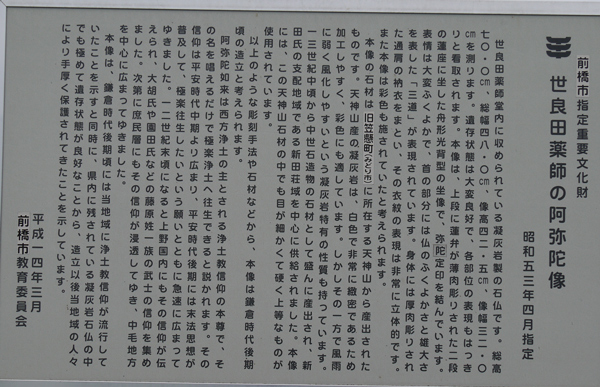 前橋市指定重要文化財
世良田薬師の阿弥陀像
昭和五三年四月指定
世良田薬師堂内に収められている凝灰岩製の石仏です。総高
七〇・〇㎝、総幅四八・〇㎝、像高四二・五㎝、像幅三二・〇
㎝を測ります。遺存状態は大変良好で、各部位の表現もはっき
りと看取されます。本像は、上段に蓮弁が薄肉彫りされた二段
の蓮座に坐した舟形光背型の坐像で、弥陀定印を結んでいます。
表情は大変ふくよかで、首の部分には仏のふくよかさと雄大さ
を表した「三道」が表現されています。身体には厚肉彫りされ
た通肩の衲衣をまとい、その衣紋の表現は非常に立体的です。
また本像は彩色も施されていたと考えられます。
本像の石材は旧笠懸町(みどり市)に所在する天神山から産出された
ものです。天神山産の凝灰岩は、白色で非常に緻密であるため
加工しやすく、彩色にも適しています。しかしその一方で風雨
に弱く風化しやすいという凝灰岩特有の性質も持っています。
一三世紀中頃から中世石造物の石材として盛んに産出され、新
田氏の支配地域である新田荘域を中心に供給されました。本像
には、この天神山石材の中でも目が細かくて硬く上等なものが
使用されています。
以上のような彫刻手法や石材などから、本像は鎌倉時代後期
頃の造立と考えられます。
阿弥陀如来は西方浄土の主とされる浄土教信仰の本尊で、そ
の名を唱えるだけで極楽浄土へ往生できると説かれます。その
信仰は平安時代中期より広まり、平安時代後期には末法思想が
普及して、極楽往生したいという願いとともに急速に広まって
ゆきました。一二世紀末頃になると上野国内にもその信仰が伝
えられ、大胡氏や園田氏などの藤原姓一族の武士の信仰を集め
ました。次第に庶民層にもその信仰が浸透してゆき、中毛地方
を中心に広まってゆきました。
本像は、鎌倉時代後期頃には当地域に浄土教信仰が流行して
いたことを示すと同時に、県内に残されている凝灰岩石仏の中
でも極めて遺存状態が良好なことから、造立以後当地域の人々
により手厚く保護されてきたことを示しています。
平成一四年三月
前橋市教育委員会